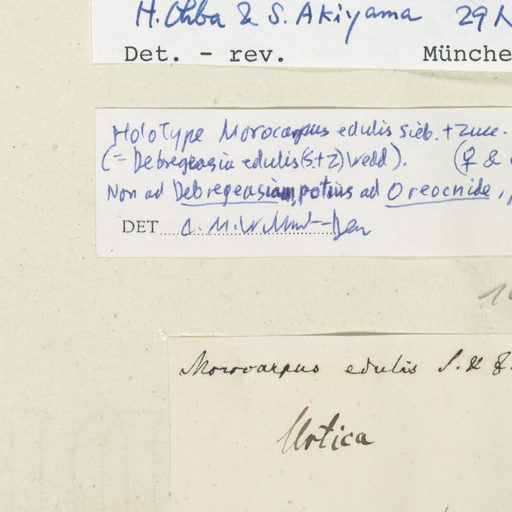 H. Ohba & S. Akiyama 29
Det. - rev. Münche
Holotype Morocarpus edulis Sieb. + Zucc.
(= Debregeasia edulis (S+Z) Wedd). (♀ &
Non ad Debregeasiam, potius ad Oreocnide,
DET C. M. Wilmot-Dear
Morocarpus edulis S. & Z.
Urtica